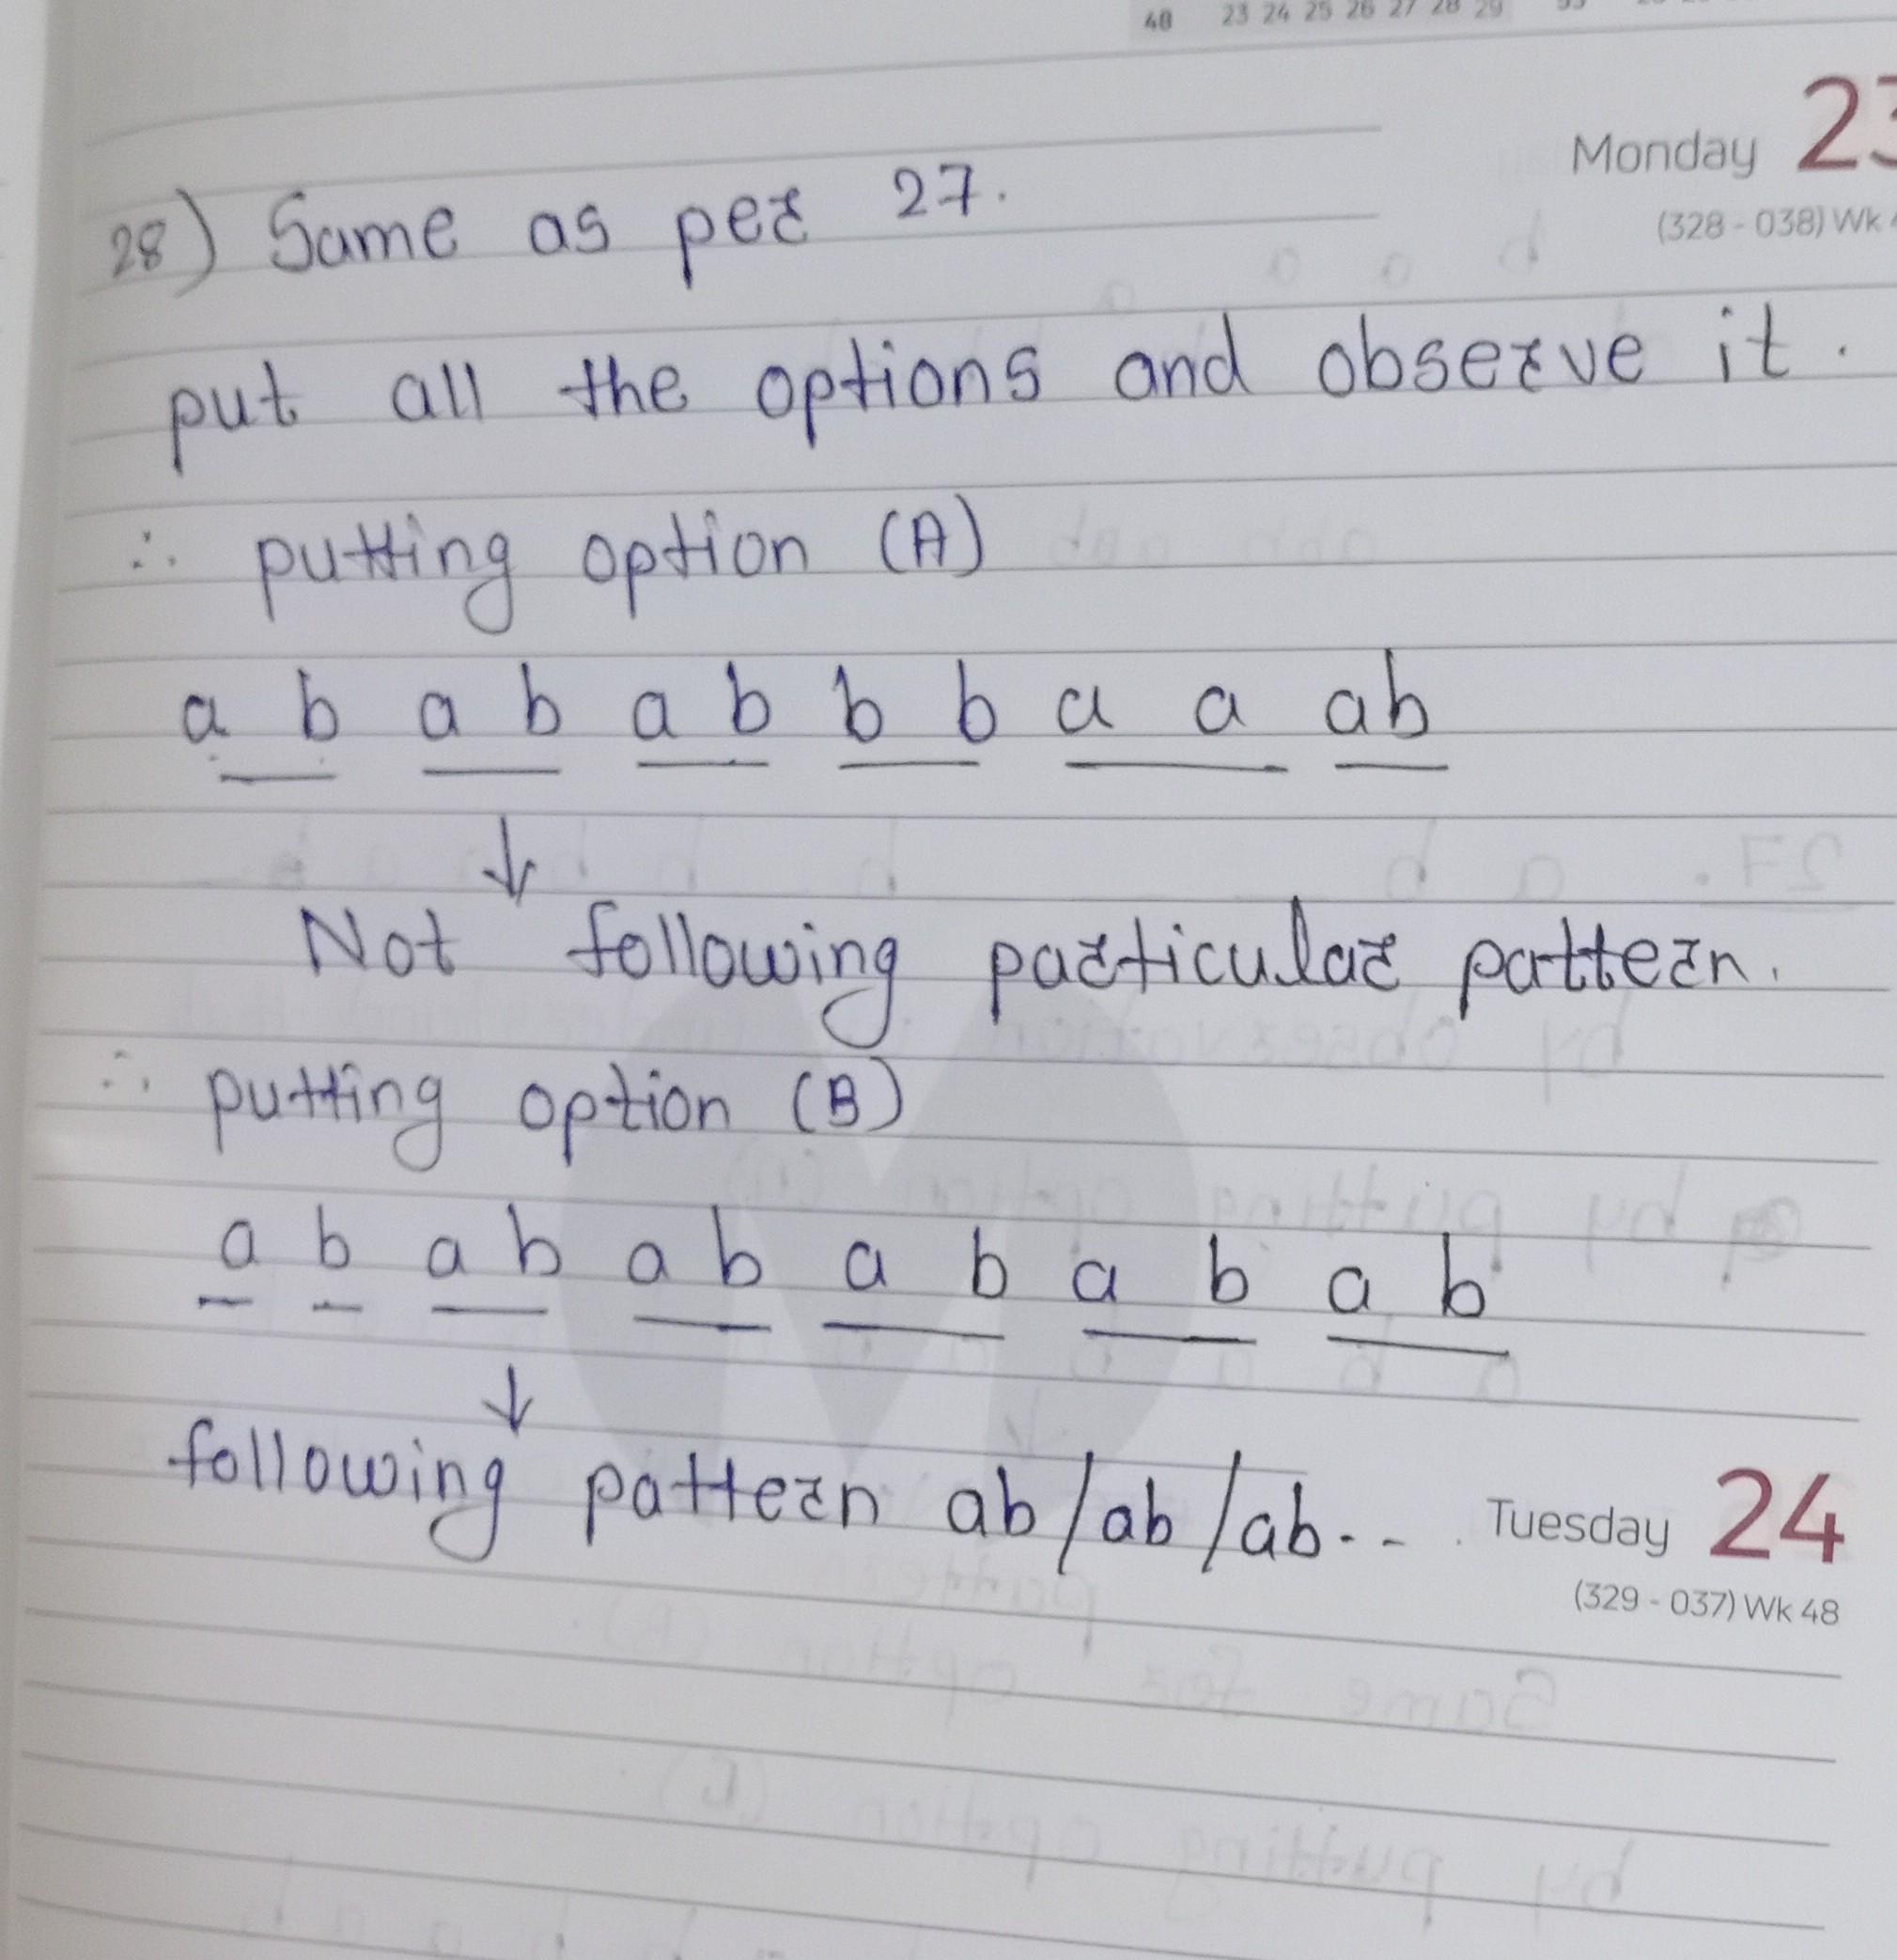 48 23 24 25 26 27 28 29
Monday 23
(328 - 038) Wk
28) Same as per 27.
put all the options and observe it.
∴ putting option (A)
a b a b a b b b a a ab
↓
Not following particular pattern.
∴ putting option (B)
a b a b a b a b a b a b
↓
following pattern ab/ab/ab...
Tuesday 24
(329 - 037) Wk 48